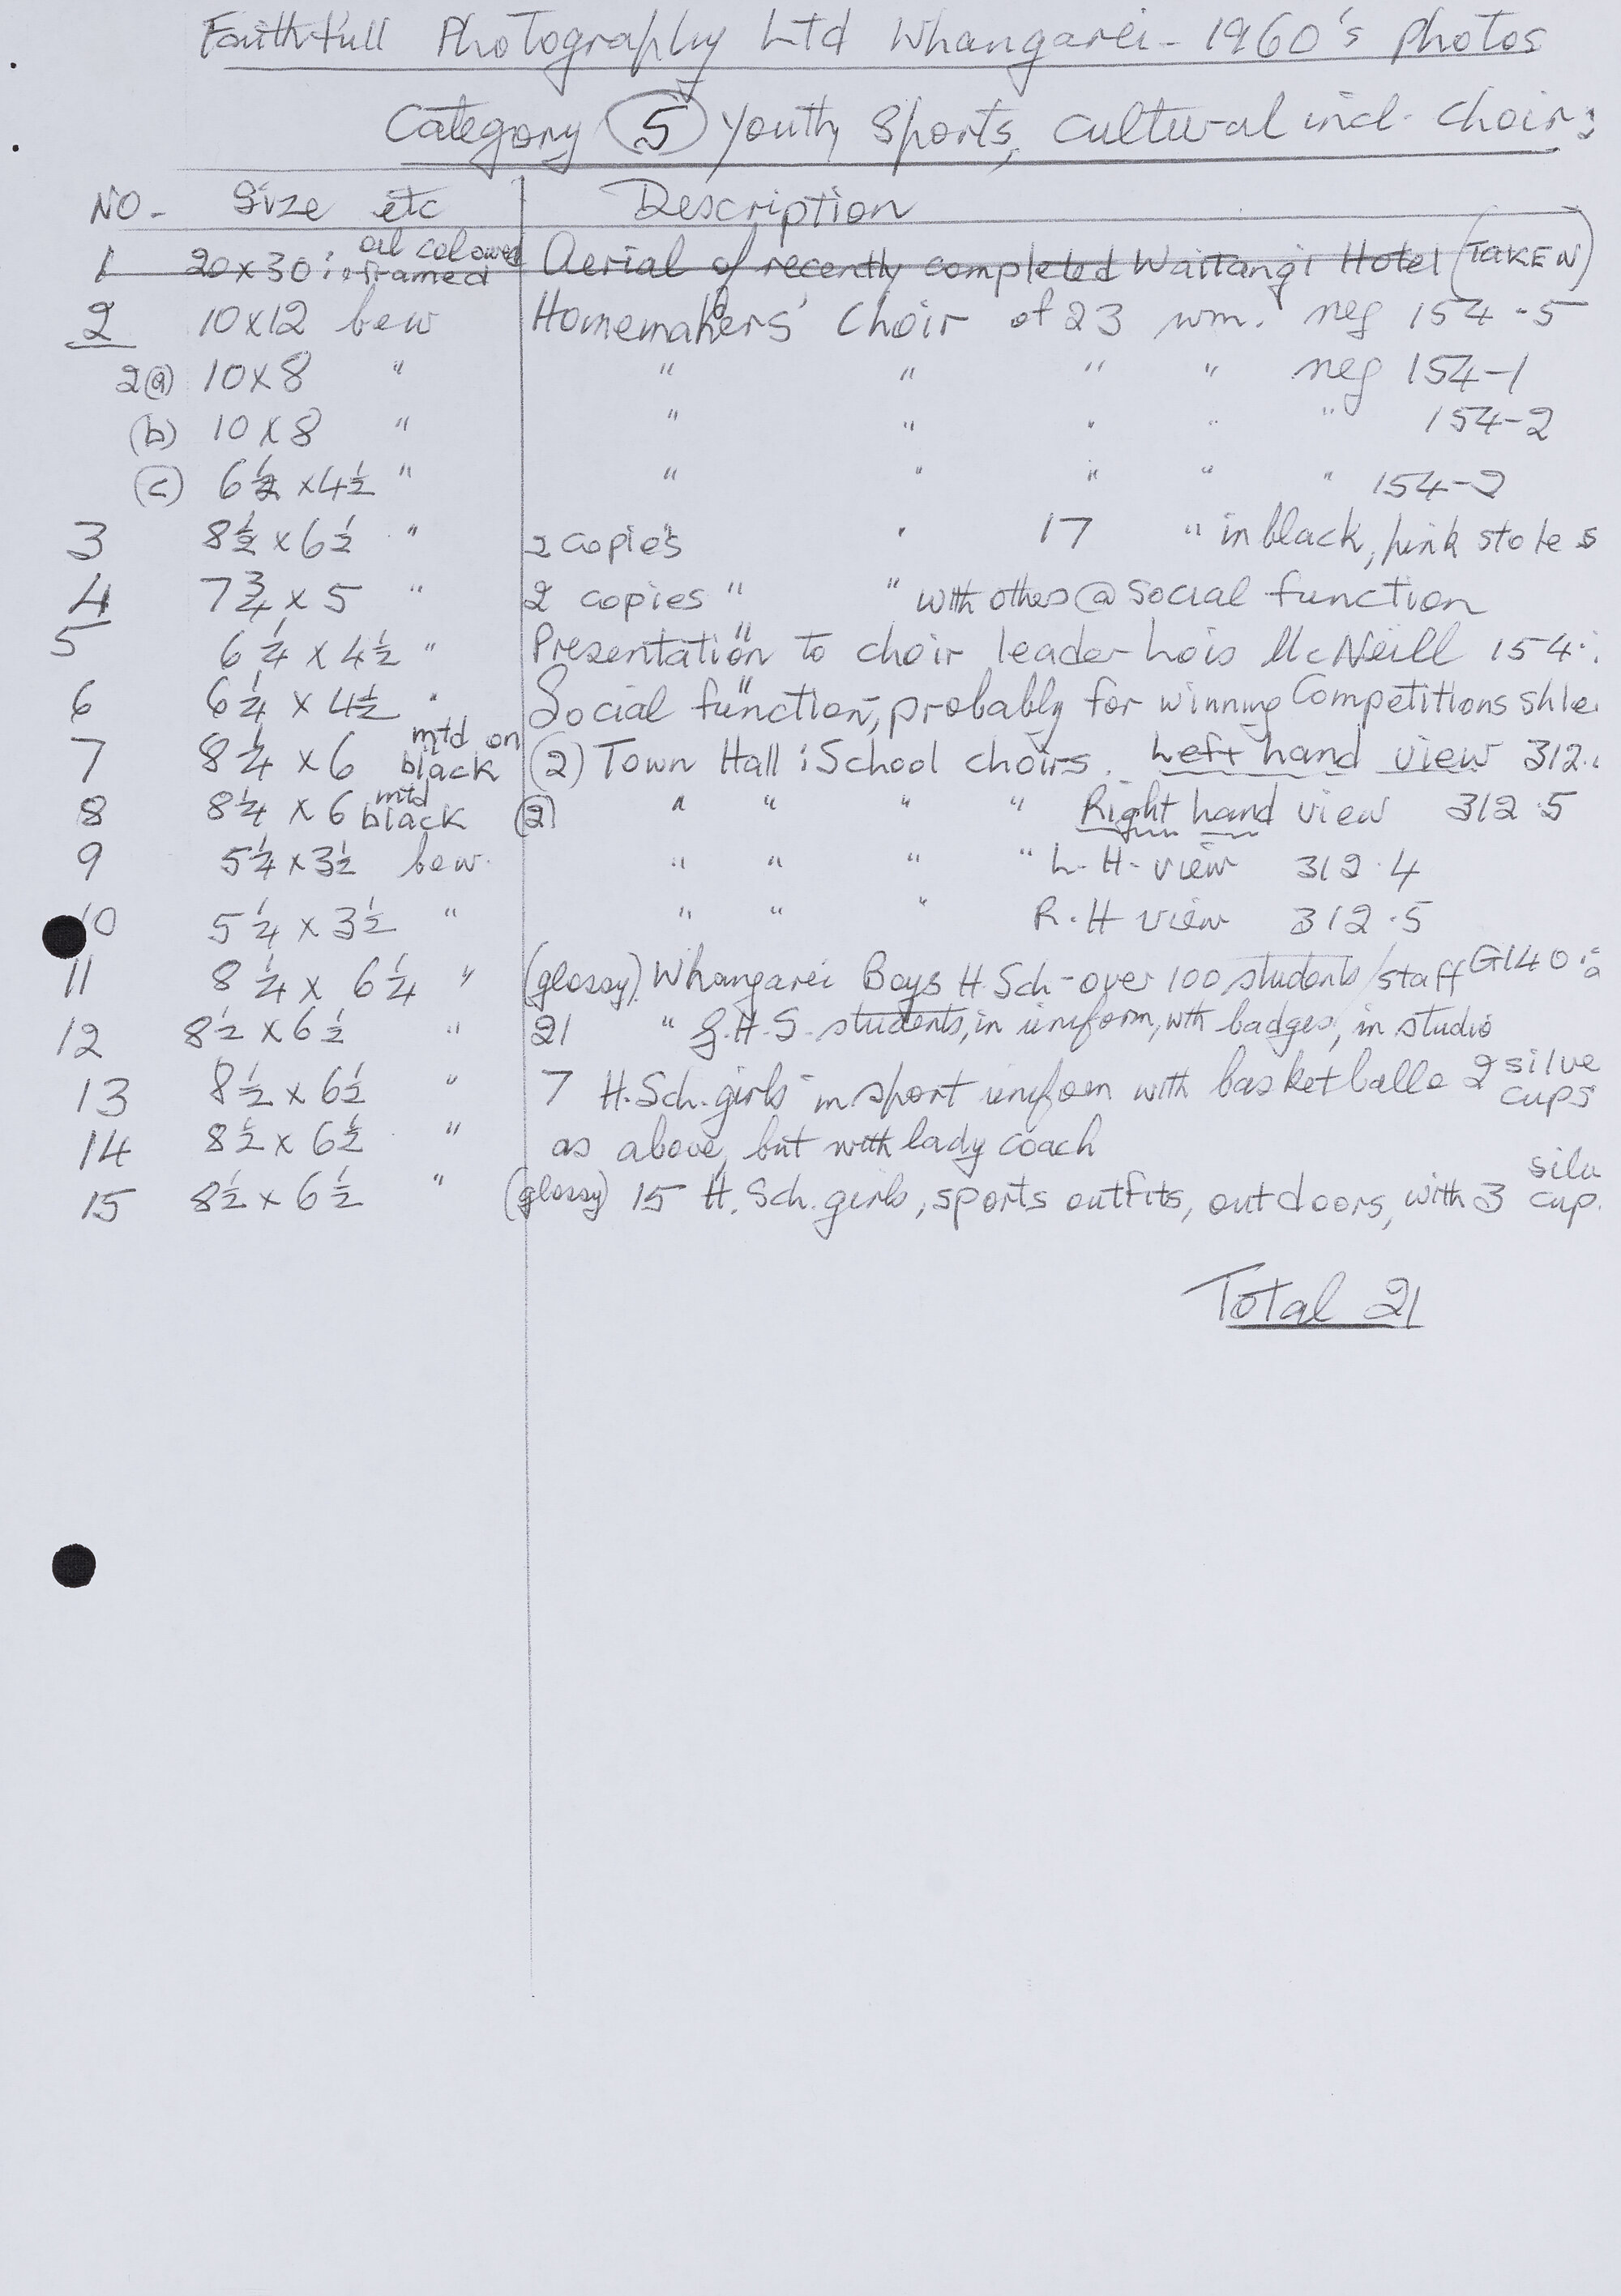 Faithfull Photography Ltd Whangarei - 1960's photos
Category 5 Youth, Sports, Cultural incl. Choirs
NO. Size etc Description
1 20x30: oil coloured framed Aerial of recently completed Waitangi Hotel (TAKEN)
2 10x12 b&w Homemakers' Choir of 23 wm. neg 154-5
2(a) 10x8 " " " " " neg 154-1
(b) 10x8 " " " " " " 154-2
(c) 6½ x4½ " " " " " " 154-2
3 8½ x 6½ " 2 copies " 17 " in black, pink stoles
4 7¾ x 5 " 2 copies " " with others @ social function
5 6¼ x 4½ " Presentation to choir leader Lois McNeill 154-
6 6¼ x 4½ " Social function, probably for winning Competitions shie
7 8¼ x 6 mtd on black (2) Town Hall : School choirs. Left hand view 312.
8 8¼ x 6 mtd black (2) " " " " Right hand view 312.5
9 5¼ x 3½ b&w. " " " " L.H. view 312.4
10 5¼ x 3½ " " " " R.H view 312.5
11 8¼ x 6¼ " (glossy). Whangarei Boys H.Sch - over 100 students/staff G140
12 8½ x 6½ " 21 " G.H.S. students, in uniform, with badges, in studio
13 8½ x 6½ " 7 H.Sch. girls in sport uniform with basketball & 2 silve cups
14 8½ x 6½ " as above, but with lady coach
15 8½ x 6½ " (glossy) 15 H. Sch. girls, sports outfits, outdoors, with 3 silv cup.
Total 21